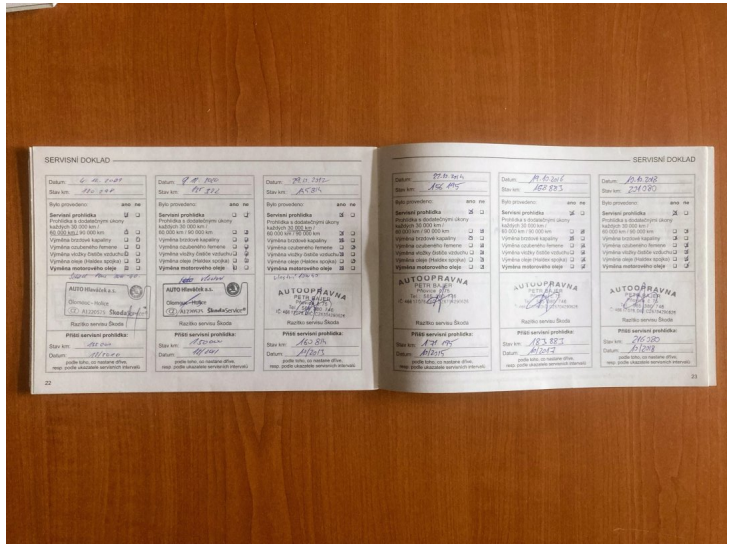 SERVISNÍ DOKLAD
Datum:
Stav km:
Bylo provedeno: ano ne
Servisní prohlídka
Prohlídka s dodatečnými úkony
každých 30 000 km /
60 000 km / 90 000 km
Výměna brzdové kapaliny
Výměna ozubeného řemene
Výměna vložky čističe vzduchu
Výměna oleje (Haldex spojka)
Výměna motorového oleje
AUTO Hlaváček a.s.
Olomouc - Holice
Razítko servisu Škoda
Příští servisní prohlídka:
Stav km:
Datum:
podle toho, co nastane dříve,
resp. podle ukazatele servisních intervalů.
Datum:
Stav km:
Bylo provedeno: ano ne
Servisní prohlídka
Prohlídka s dodatečnými úkony
každých 30 000 km /
60 000 km / 90 000 km
Výměna brzdové kapaliny
Výměna ozubeného řemene
Výměna vložky čističe vzduchu
Výměna oleje (Haldex spojka)
Výměna motorového oleje
AUTO Hlaváček a.s.
Olomouc - Holice
ŠkodaService
Razítko servisu Škoda
Příští servisní prohlídka:
Stav km:
Datum:
podle toho, co nastane dříve,
resp. podle ukazatele servisních intervalů.
Datum:
Stav km:
Bylo provedeno: ano ne
Servisní prohlídka
Prohlídka s dodatečnými úkony
každých 30 000 km /
60 000 km / 90 000 km
Výměna brzdové kapaliny
Výměna ozubeného řemene
Výměna vložky čističe vzduchu
Výměna oleje (Haldex spojka)
Výměna motorového oleje
AUTOOPRAVNA
PETR BAJER
Razítko servisu Škoda
Příští servisní prohlídka:
Stav km:
Datum: 11/2013
podle toho, co nastane dříve,
resp. podle ukazatele servisních intervalů.
22
SERVISNÍ DOKLAD
Datum:
Stav km: 156 195
Bylo provedeno: ano ne
Servisní prohlídka
Prohlídka s dodatečnými úkony
každých 30 000 km /
60 000 km / 90 000 km
Výměna brzdové kapaliny
Výměna ozubeného řemene
Výměna vložky čističe vzduchu
Výměna oleje (Haldex spojka)
Výměna motorového oleje
AUTOOPRAVNA
PETR BAJER
Razítko servisu Škoda
Příští servisní prohlídka:
Stav km: 171 195
Datum: 10/2015
podle toho, co nastane dříve,
resp. podle ukazatele servisních intervalů.
Datum:
Stav km: 168 883
Bylo provedeno: ano ne
Servisní prohlídka
Prohlídka s dodatečnými úkony
každých 30 000 km /
60 000 km / 90 000 km
Výměna brzdové kapaliny
Výměna ozubeného řemene
Výměna vložky čističe vzduchu
Výměna oleje (Haldex spojka)
Výměna motorového oleje
AUTOOPRAVNA
PETR BAJER
Razítko servisu Škoda
Příští servisní prohlídka:
Stav km: 183 883
Datum: 10/2017
podle toho, co nastane dříve,
resp. podle ukazatele servisních intervalů.
Datum:
Stav km: 201 080
Bylo provedeno: ano ne
Servisní prohlídka
Prohlídka s dodatečnými úkony
každých 30 000 km /
60 000 km / 90 000 km
Výměna brzdové kapaliny
Výměna ozubeného řemene
Výměna vložky čističe vzduchu
Výměna oleje (Haldex spojka)
Výměna motorového oleje
AUTOOPRAVNA
PETR BAJER
Razítko servisu Škoda
Příští servisní prohlídka:
Stav km: 216 080
Datum:
podle toho, co nastane dříve,
resp. podle ukazatele servisních intervalů.
23